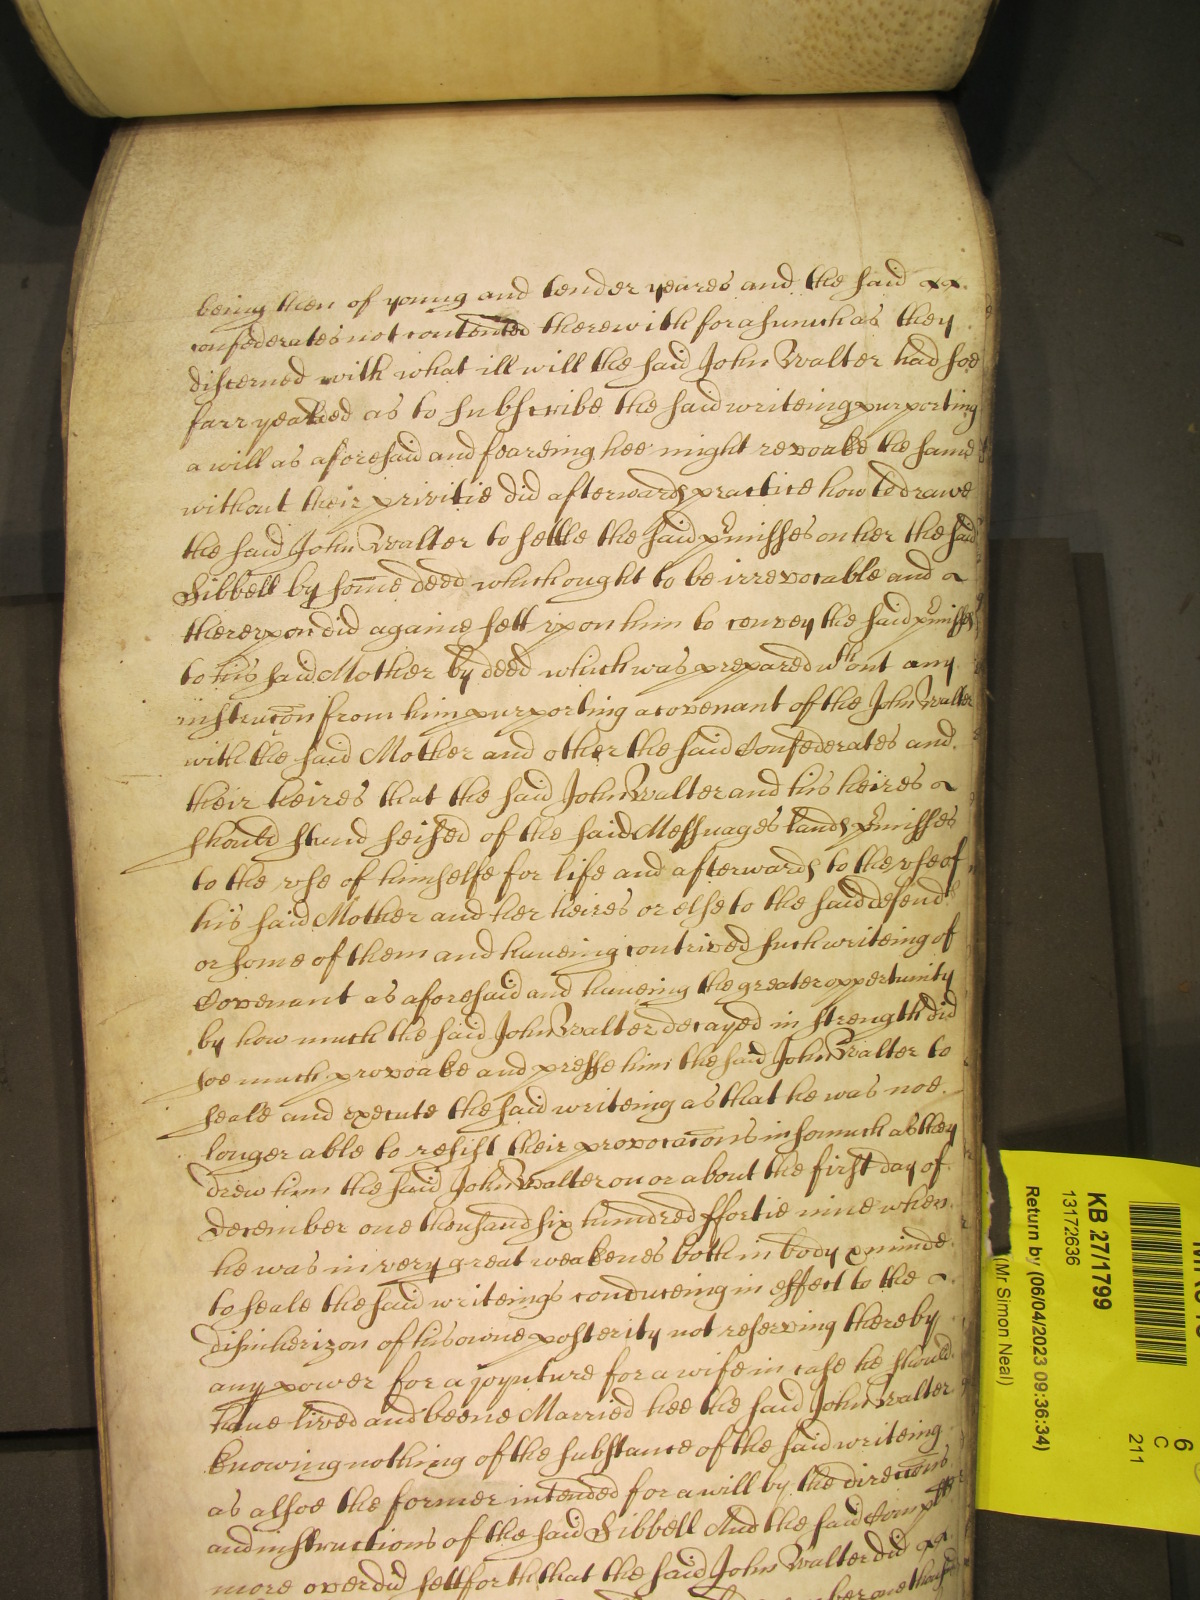 being then of young and tender yeares and the said xx.
confederates not contented therewith forasmuch as they
discerned with what ill will the said John Walter had soe
farr yealded as to subscribe the said writeing purporting
a will as aforesaid and feareing hee might revoake the same
without their privitie did afterwards practice how to drawe
the said John Walter to settle the said pmisses on her the said
Sibbell by some deed which ought to be irrevocable and
thereupon did againe sett upon him to convey the said pmisses
to his said Mother by deed which was prepared wthout any
instruccon from him purporting a covenant of the John Walter
with the said Mother and other the said Confederates and
their heires that the said John Walter and his heires
should stand seised of the said Messuages lands pmisses
to the vse of himselfe for life and afterwards to the vse of
his said Mother and her heires or else to the said defendts
or some of them and haueing contrived such writeing of
Covenant as aforesaid and haueing the greater oppertunity
by how much the said John Walter decayed in strength did
soe much provoake and presse him the said John Walter to
seale and execute the said writeing as that he was noe
longer able to resist their provocacons insomuch as they
drew him the said John Walter on or about the first day of
December one thousand six hundred ffortie nine when
he was in very great weakenes both in body & minde
to seale the said writeings conduceing in effect to the
disinherizon of his owne posterity not reserving thereby
any power for a joynture for a wife in case he should
haue lived and beene Married hee the said John Walter
knowing nothing of the substance of the said writeing
as alsoe the former intended for a will by the direccons
and instructions of the said Sibbell And the said Complt
more over did sett forth that the said John Walter did xx
ber one thousand
KB 27/1799
13172636
Return by (06/04/2023 09:36:34)
(Mr Simon Neal)
6
C
211